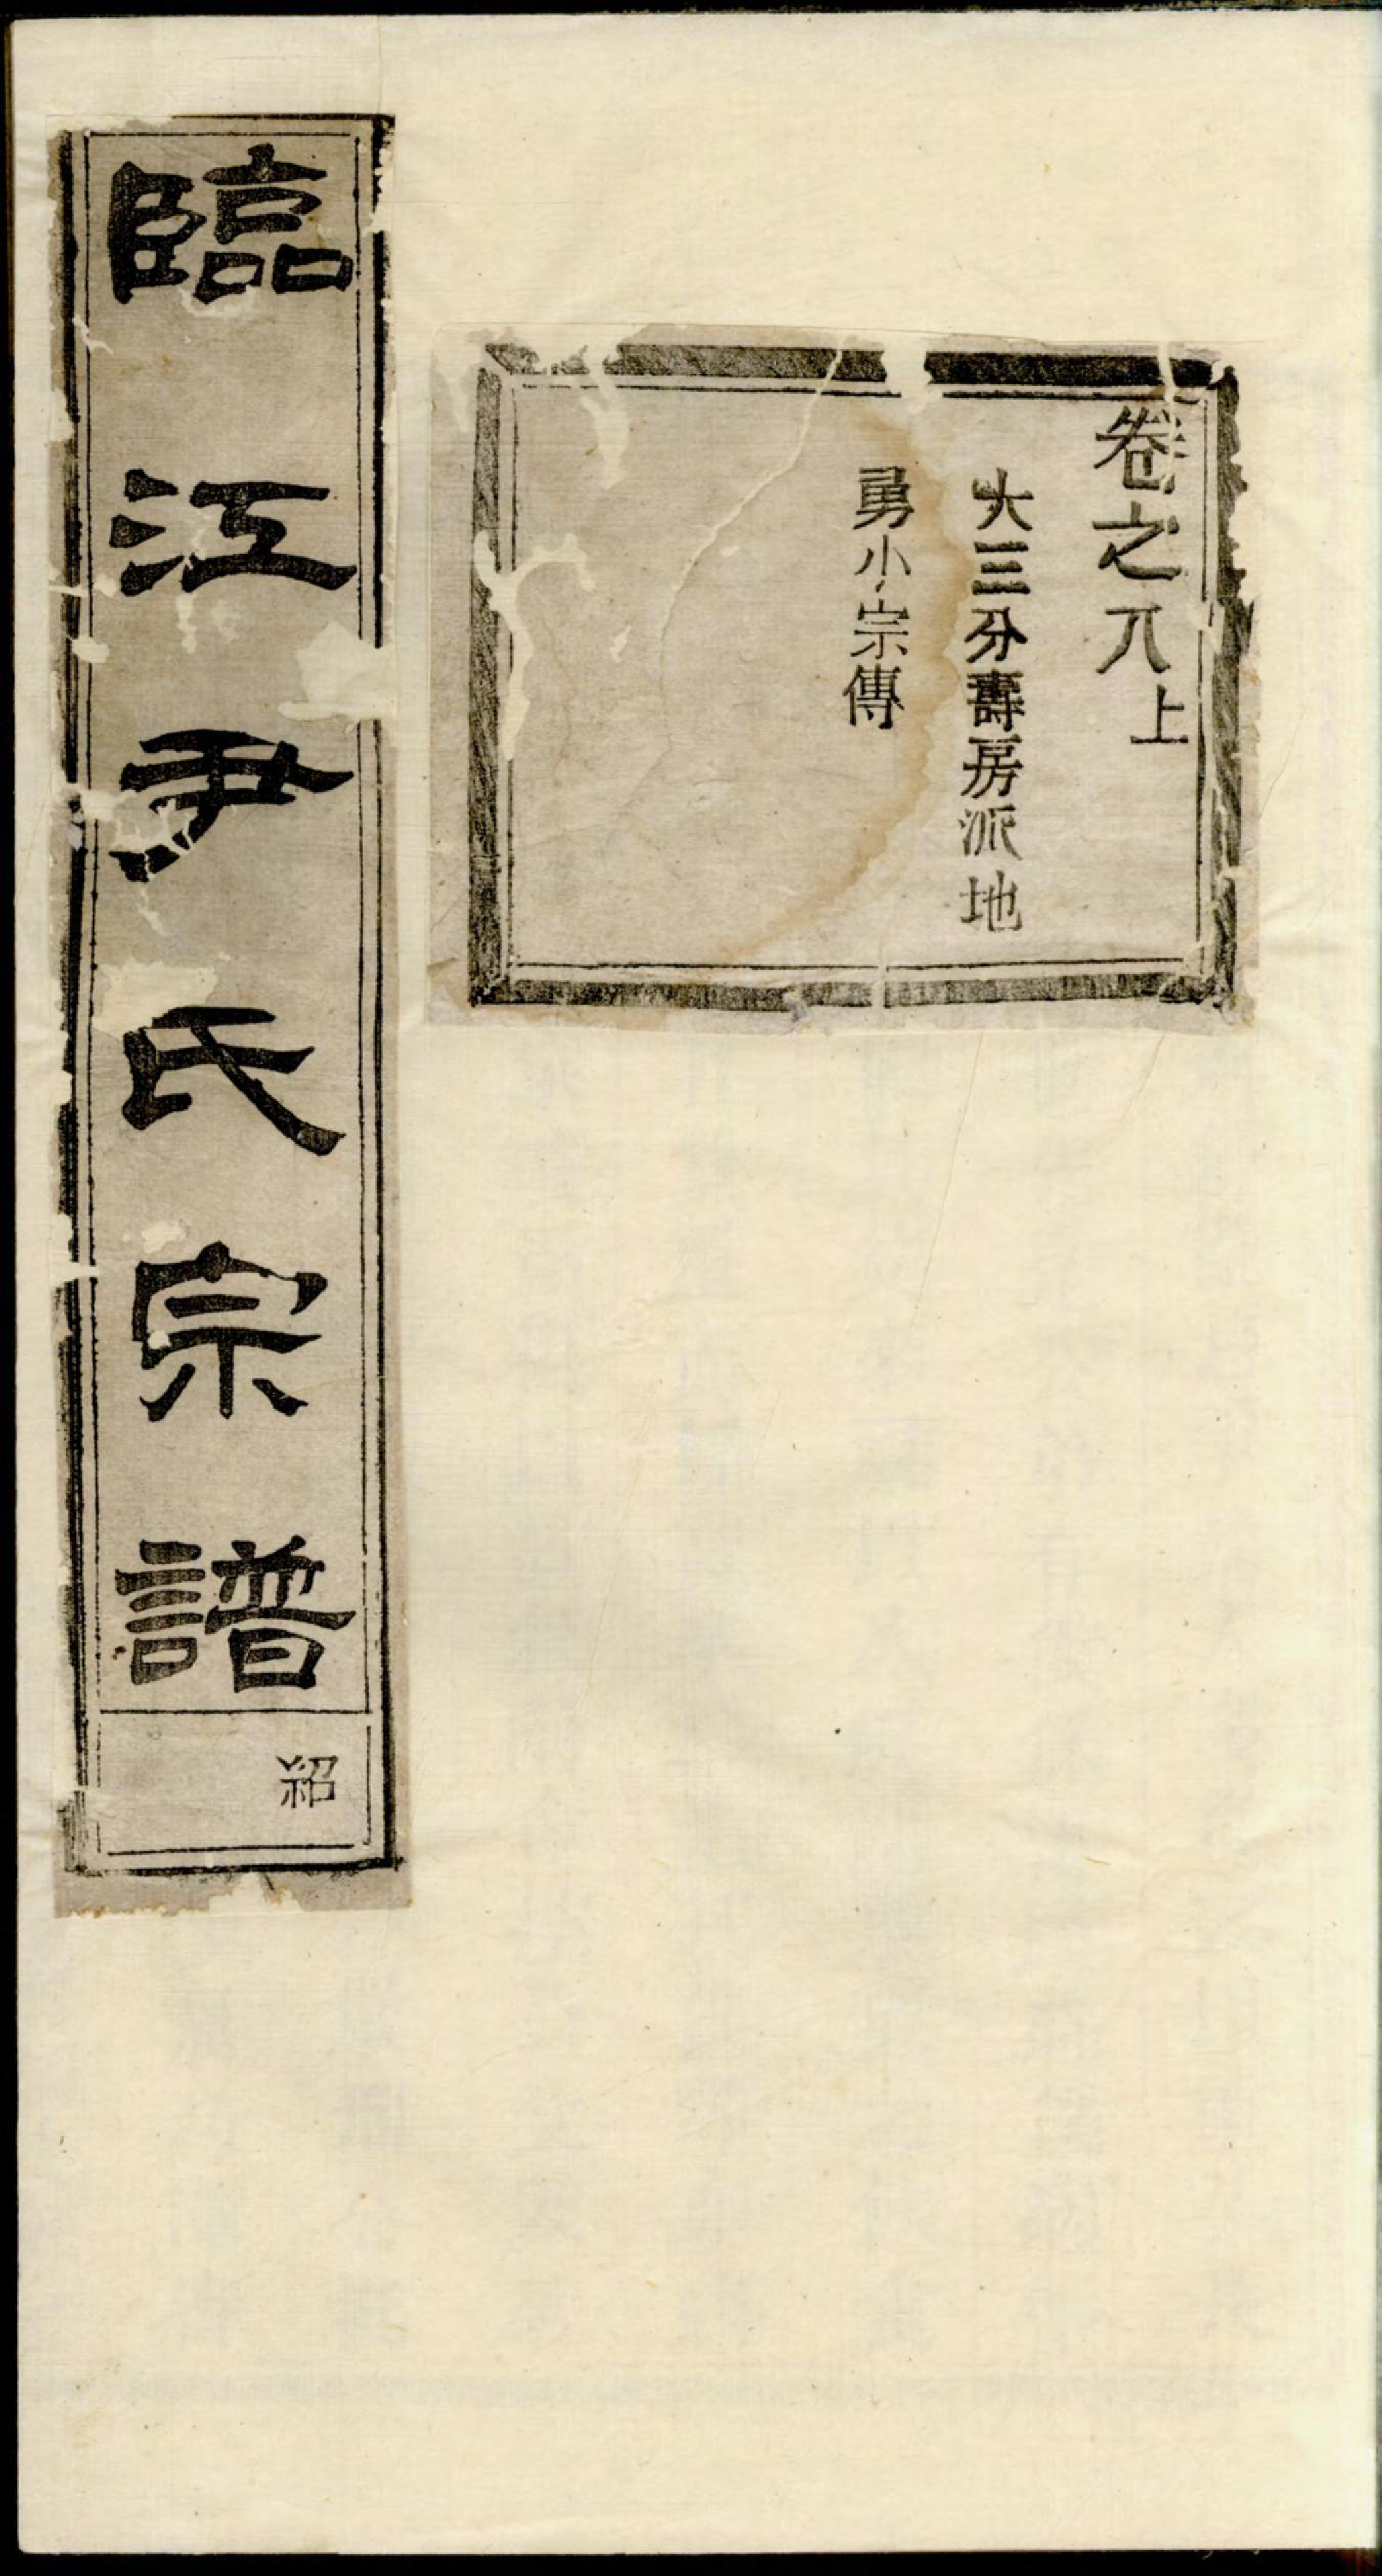 卷之八上
大三分壽房派地
勇小宗傳
臨江尹氏宗譜
紹